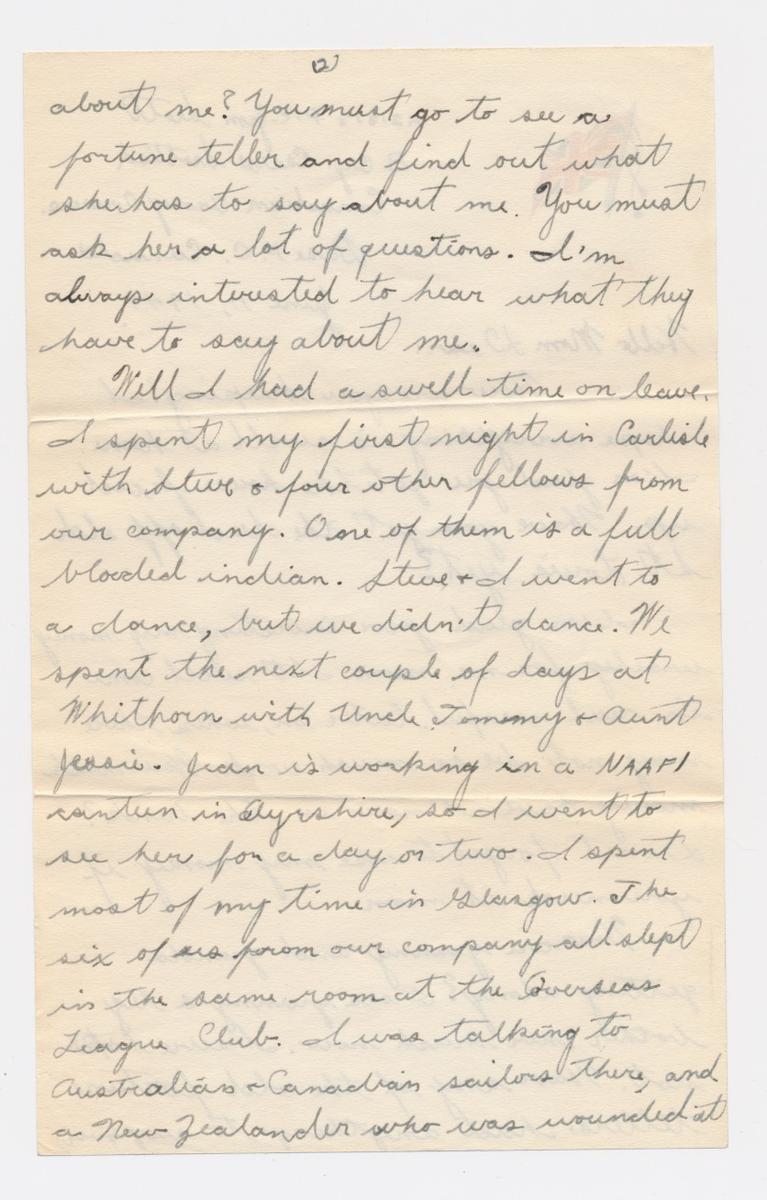 (2)
about me? You must go to see a
fortune teller and find out what
she has to say about me. You must
ask her a lot of questions. I'm
always interested to hear what they
have to say about me.
Well I had a swell time on leave.
I spent my first night in Carlisle
with Steve & four other fellows from
our company. One of them is a full
blooded indian. Steve & I went to
a dance, but we didn't dance. We
spent the next couple of days at
Whithorn with Uncle Tommy & Aunt
Jessie. Jean is working in a NAAFI
canteen in Ayrshire, so I went to
see her for a day or two. I spent
most of my time in Glasgow. The
six of us from our company all slept
in the same room at the Overseas
League Club. I was talking to
Australian & Canadian sailors there, and
a New Zealander who was wounded at